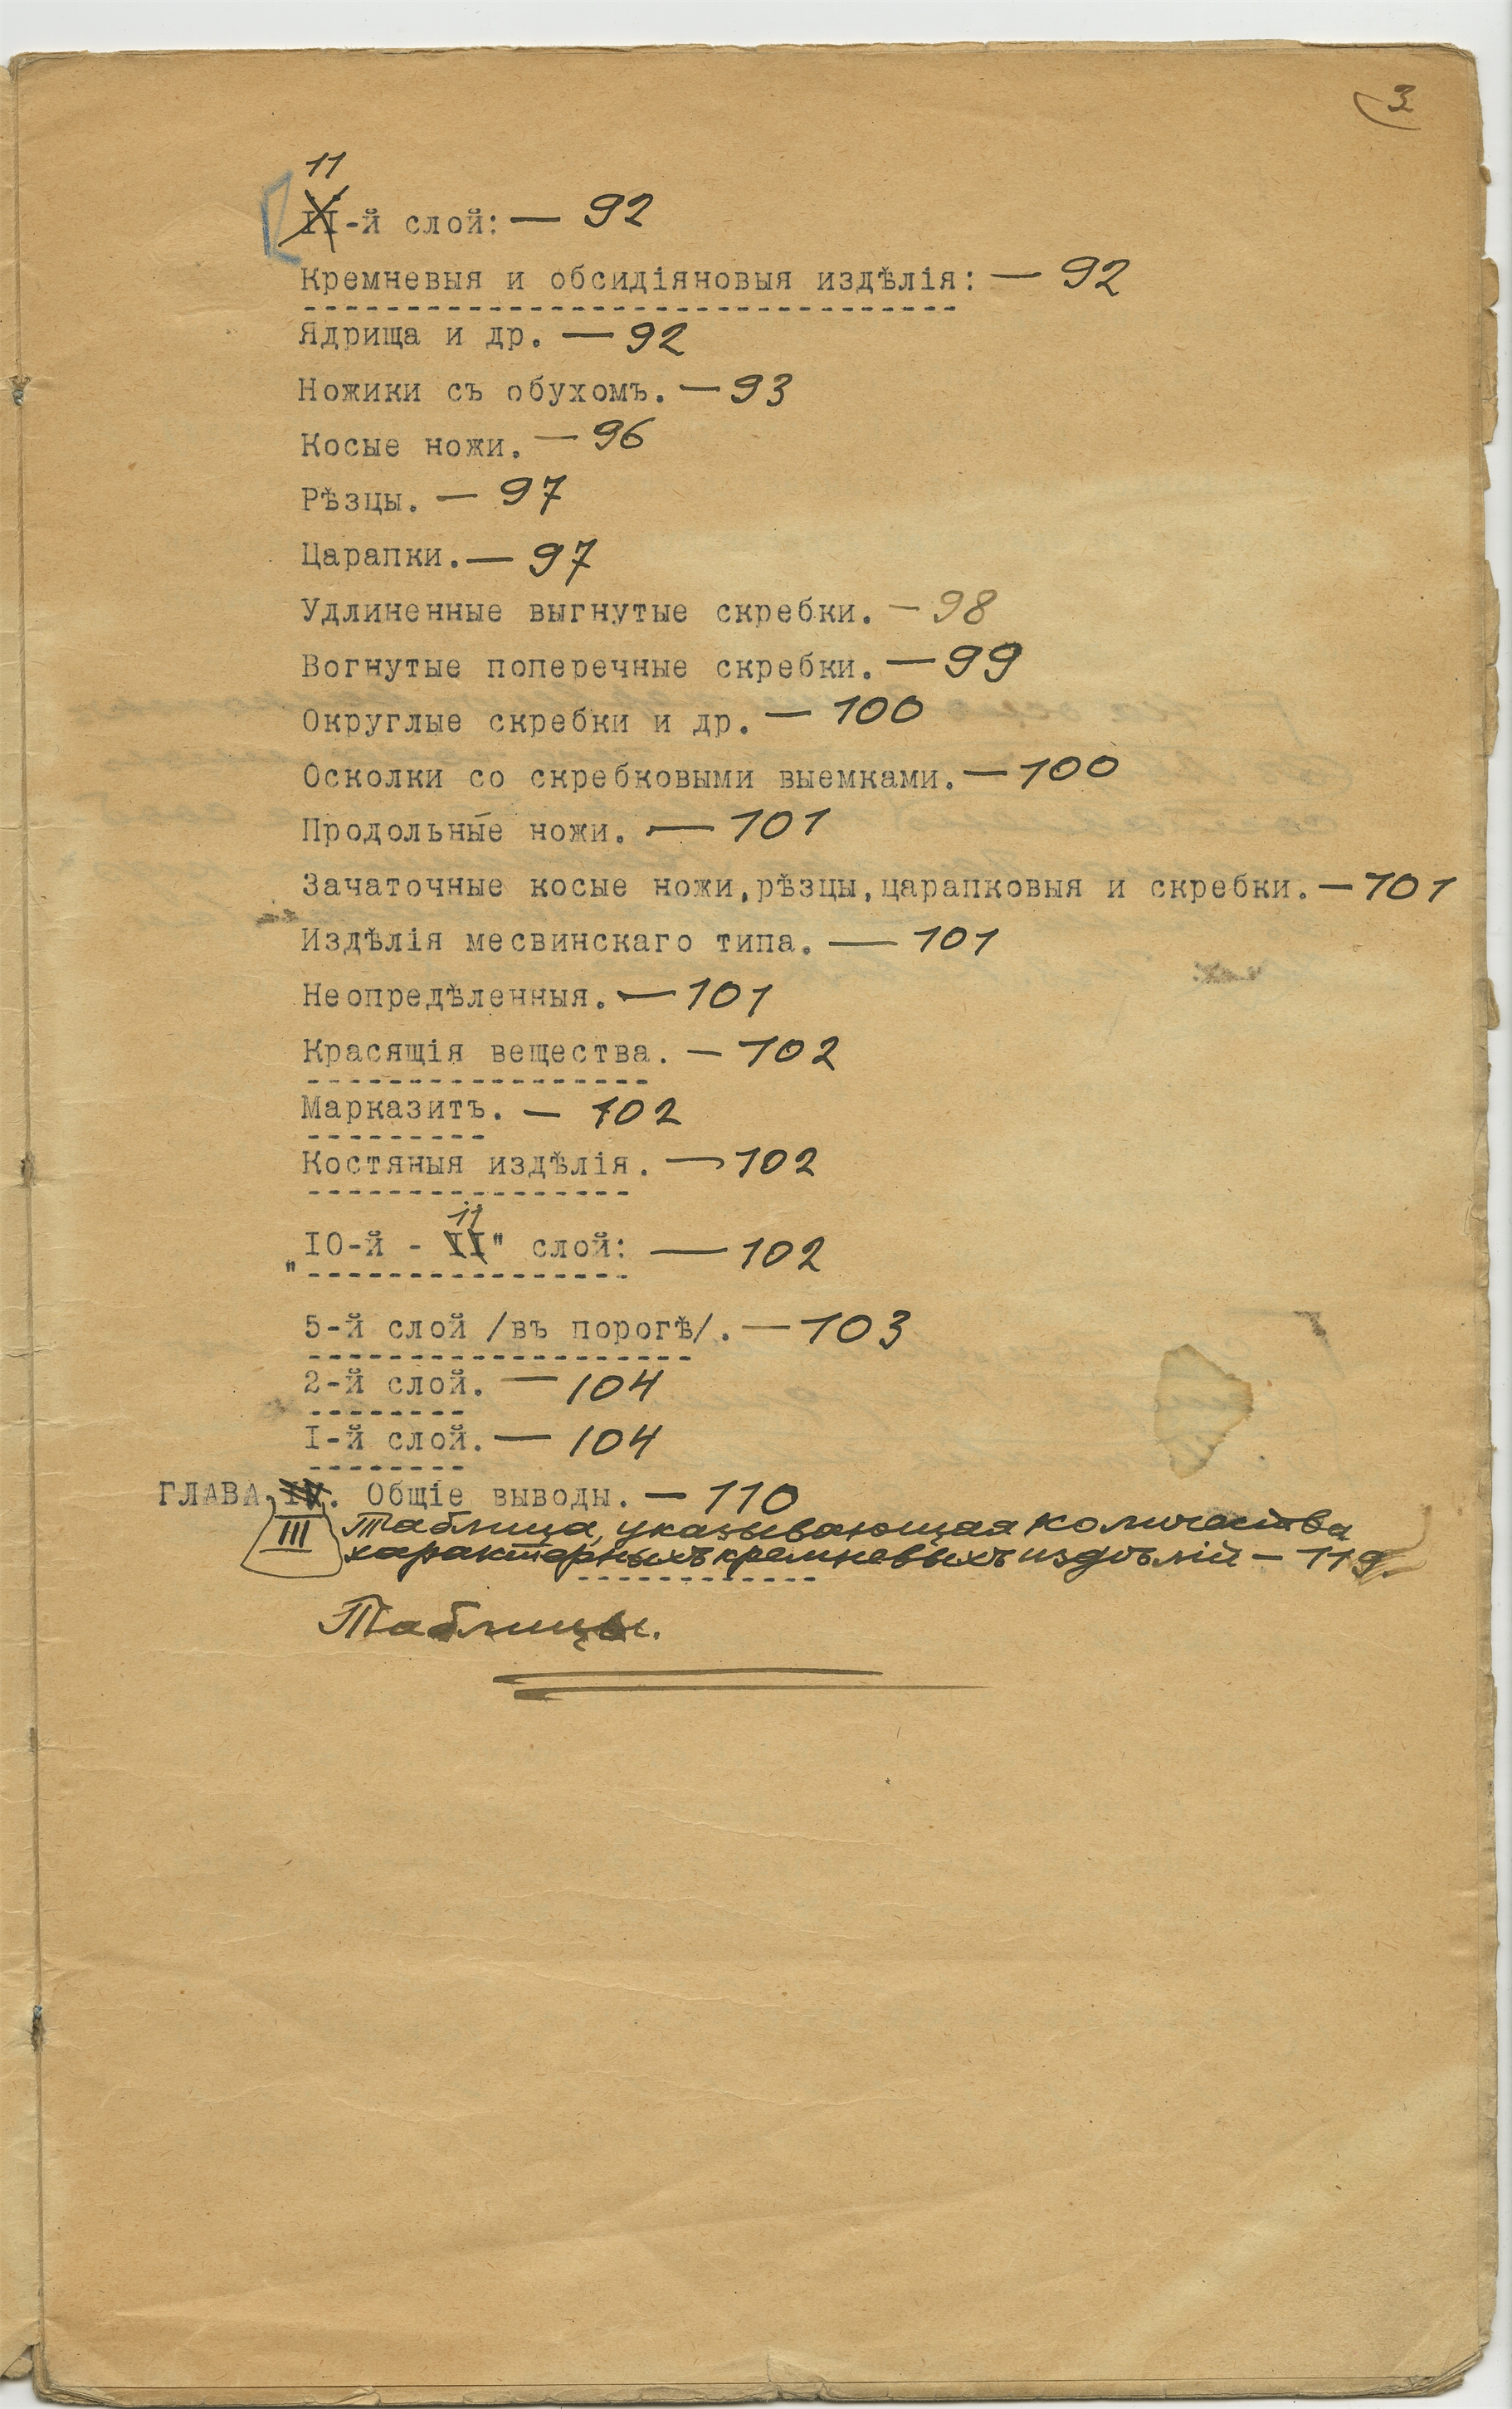 3
11
II-й слой: — 92
Кремневыя и обсидіяновыя издѣлія: — 92
Ядрища и др. — 92
Ножики съ обухомъ. — 93
Косые ножи. — 96
Рѣзцы. — 97
Царапки. — 97
Удлиненные выгнутые скребки. — 98
Вогнутые поперечные скребки. — 99
Округлые скребки и др. — 100
Осколки со скребковыми выемками. — 100
Продольные ножи. — 101
Зачаточные косые ножи, рѣзцы, царапковыя и скребки. — 101
Издѣлія месвинскаго типа. — 101
Неопредѣленныя. — 101
Красящія вещества. — 102
Марказитъ. — 102
Костяныя издѣлія. — 102
11
"IO-й - II" слой: — 102
5-й слой /въ порогѣ/. — 103
2-й слой. — 104
I-й слой. — 104
ГЛАВА IV. Общіе выводы. — 110
III Таблица, указывающая количества
характерныхъ кремневыхъ издѣлій — 119.
Таблицы.